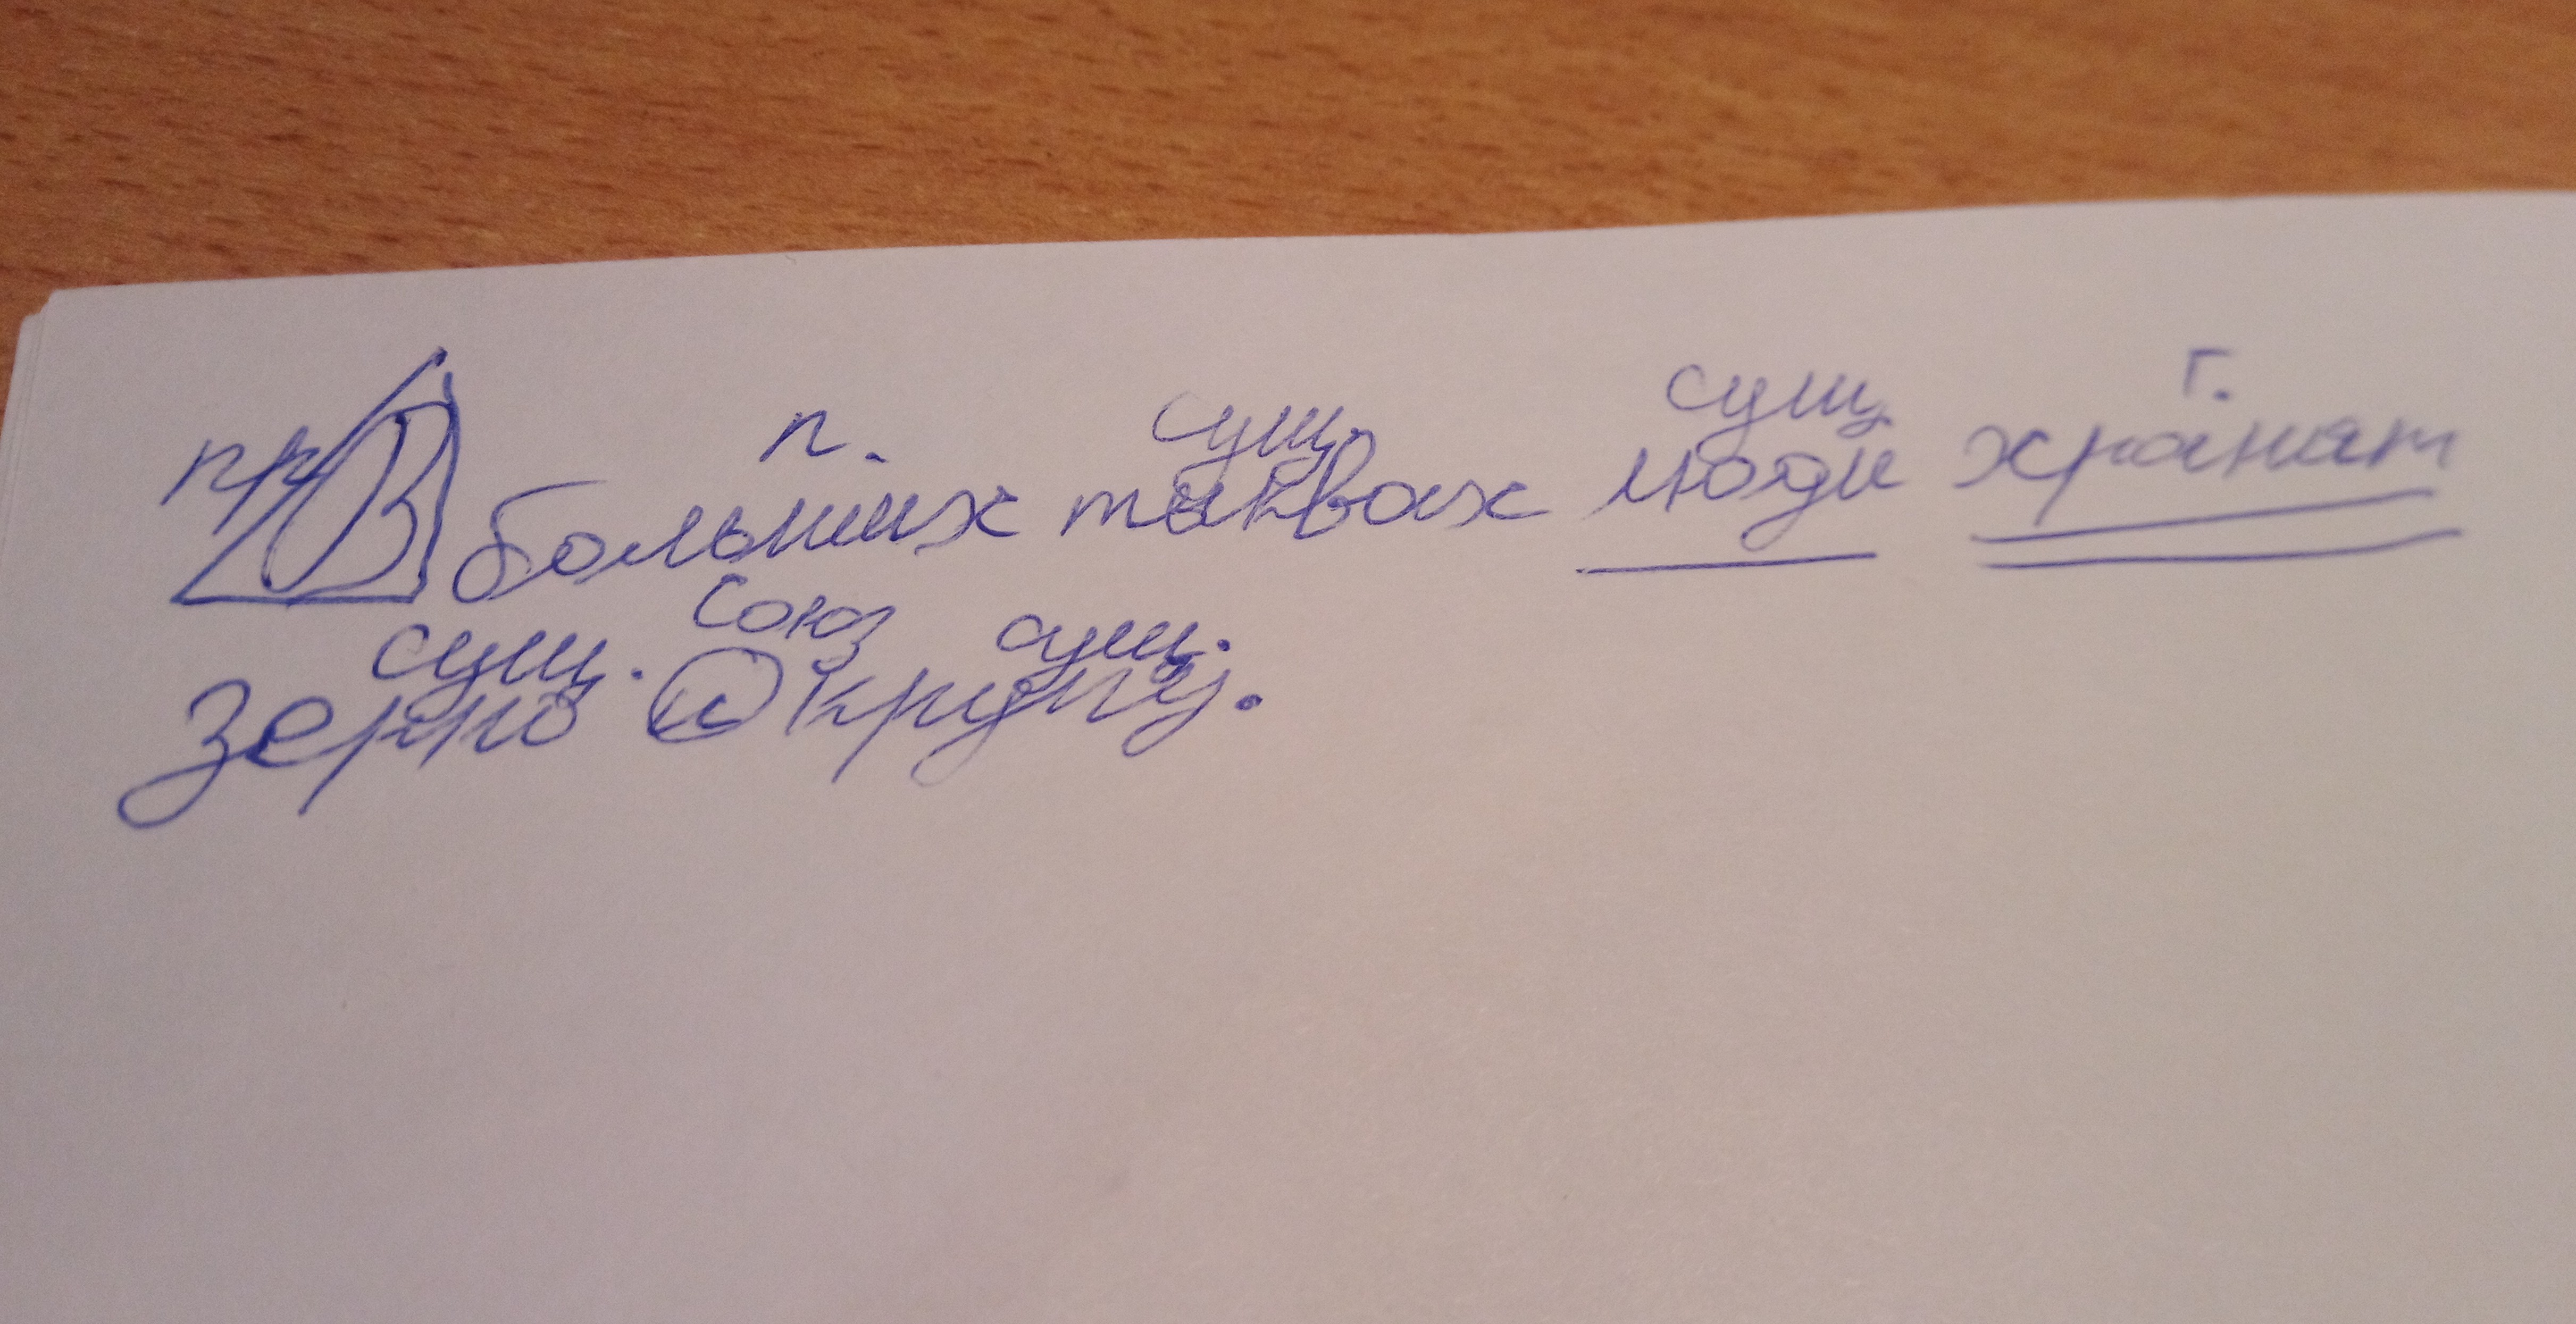 пр п. сущ. сущ. г.
В больших тыквах люди хранят
сущ. союз сущ.
зерно и крупу.